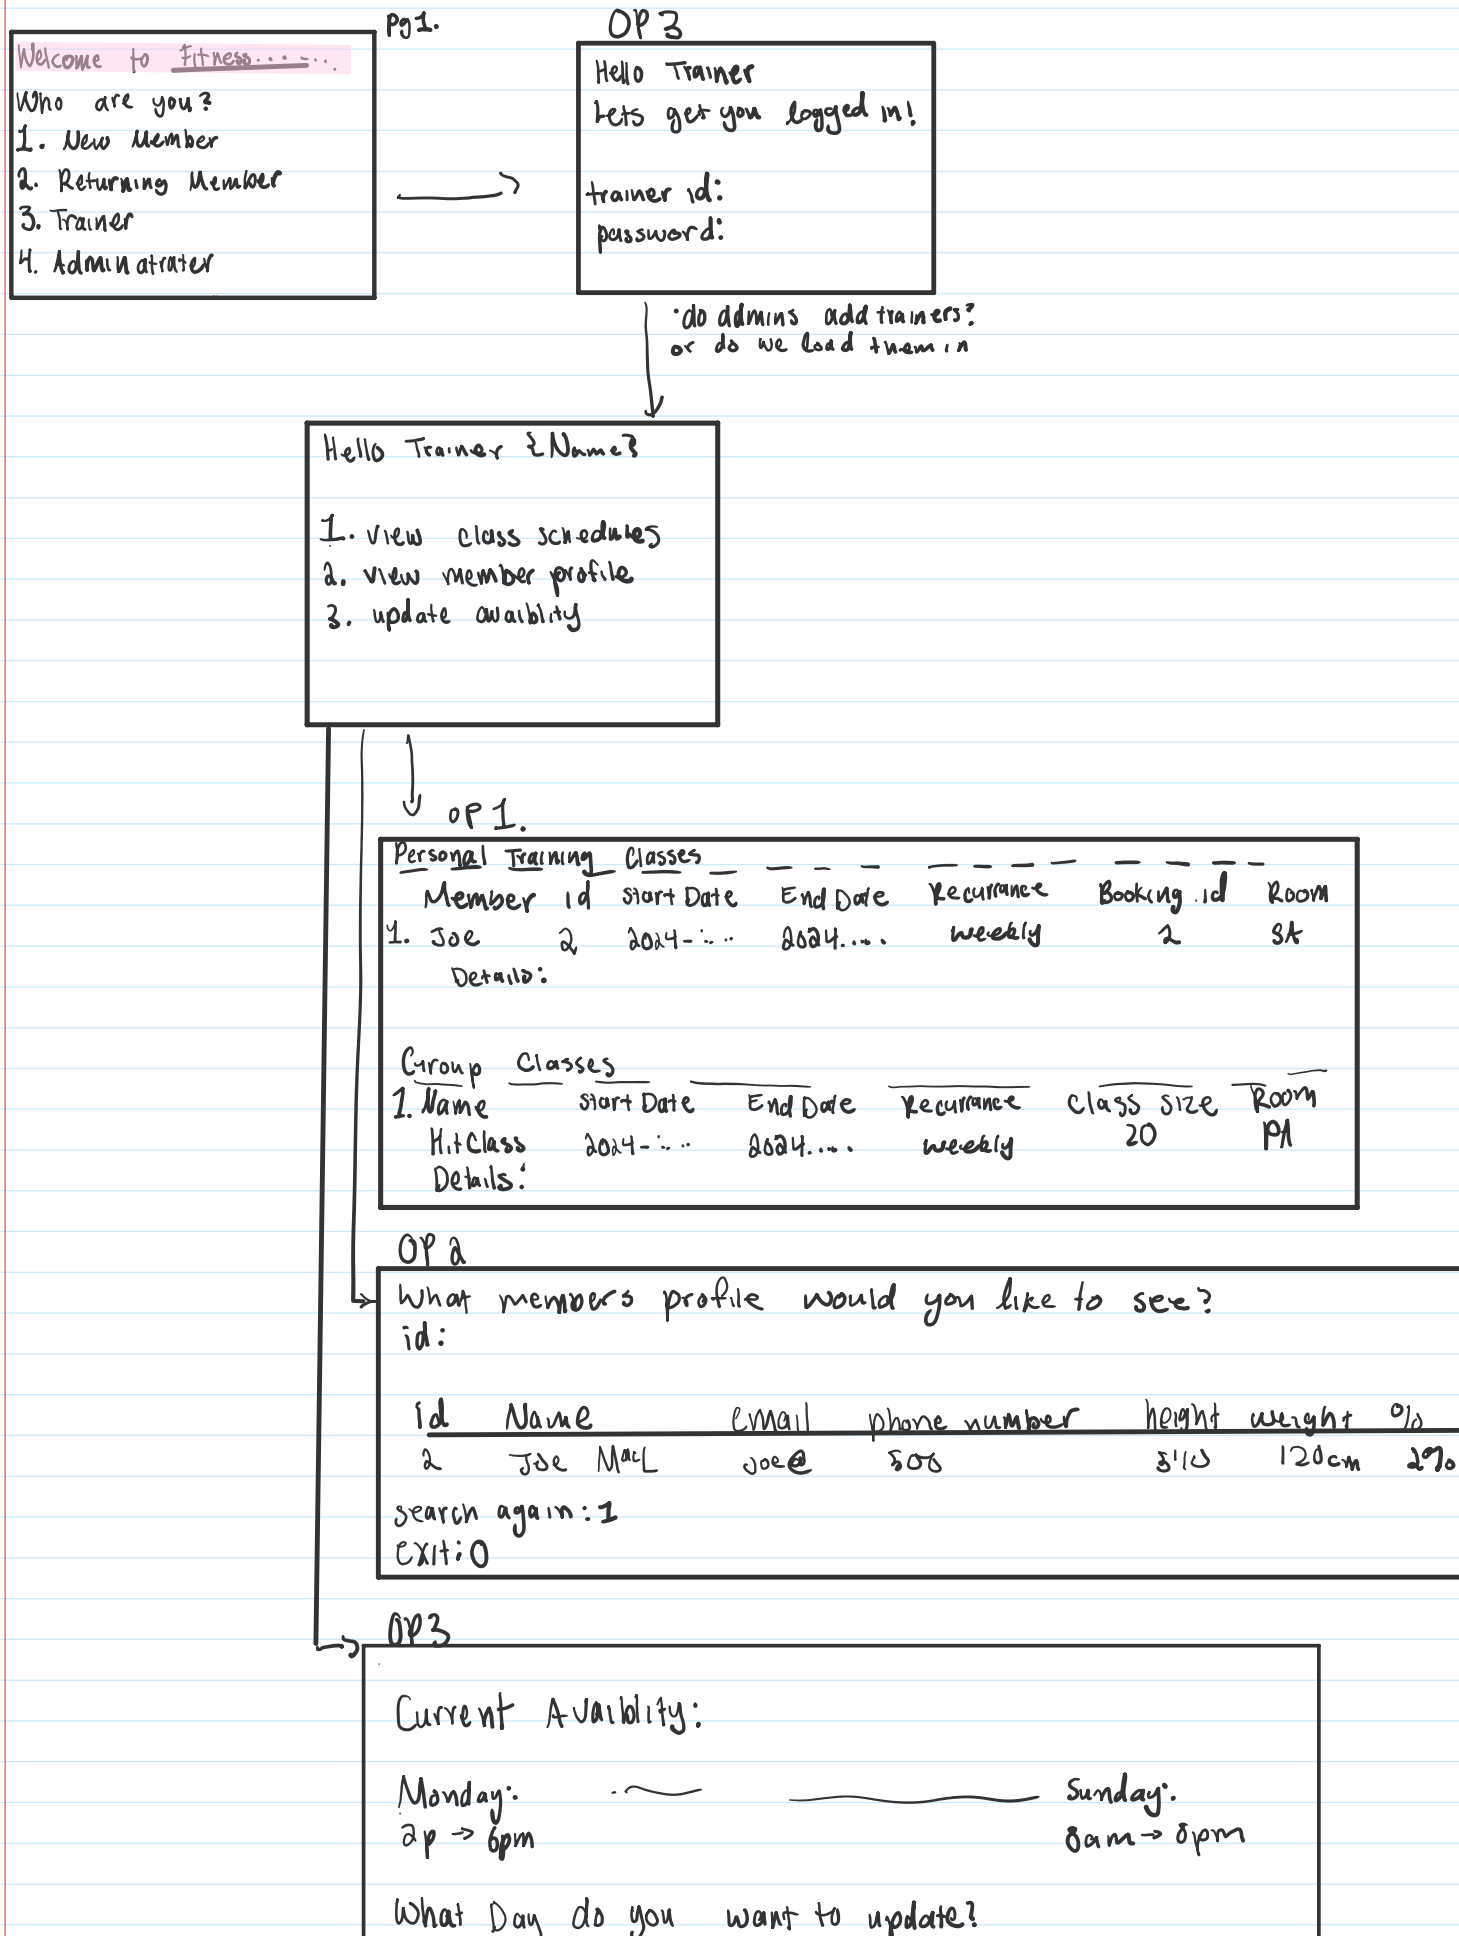 Pg1.
Welcome to Fitness.......
Who are you?
1. New Member
2. Returning Member
3. Trainer
4. Adminatrater
OP 3
Hello Trainer
Lets get you logged in!
trainer id:
password:
·do admins add trainers?
or do we load them in
Hello Trainer {Name}
1. view class schedules
2. view member profile
3. update avaiblity
OP 1.
Personal Training Classes
Member id Start Date End Date Recurrance Booking id Room
1. Joe 2 2024-.... 2024..... weekly 2 SA
Details:
Group Classes
1. Name Start Date End Date Recurrance Class size Room
HitClass 2024-.... 2024..... weekly 20 PA
Details:
OP 2
What members profile would you like to see?
id:
id Name email phone number height weight %
2 Joe MacL Joe@ 500 5'10 120cm 2%
search again: 1
exit: 0
OP3
Current Avaiblity:
Monday: Sunday:
2p → 6pm 8am → 8pm
What Day do you want to update?